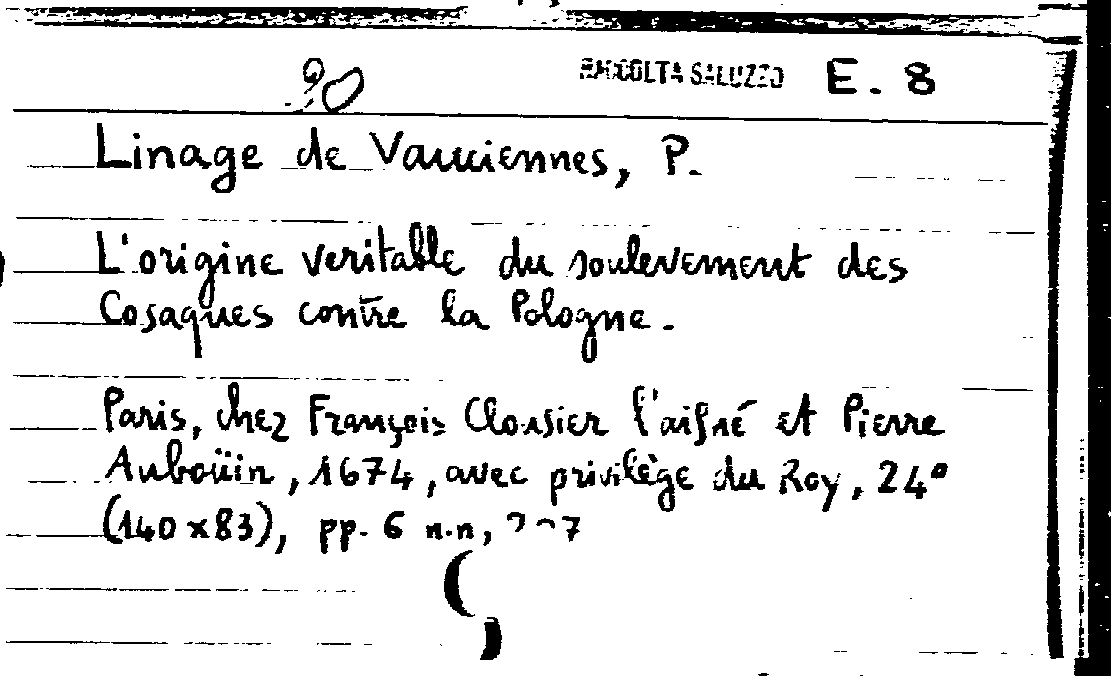 90 RACCOLTA SALUZZO E. 8
Linage de Vauciennes, P.
L'origine veritable du soulevement des
Cosaques contre la Pologne.
Paris, chez François Clousier l'aisné et Pierre
Auboüin, 1674, avec privilège du Roy, 24°
(140x83), pp. 6 n.n,